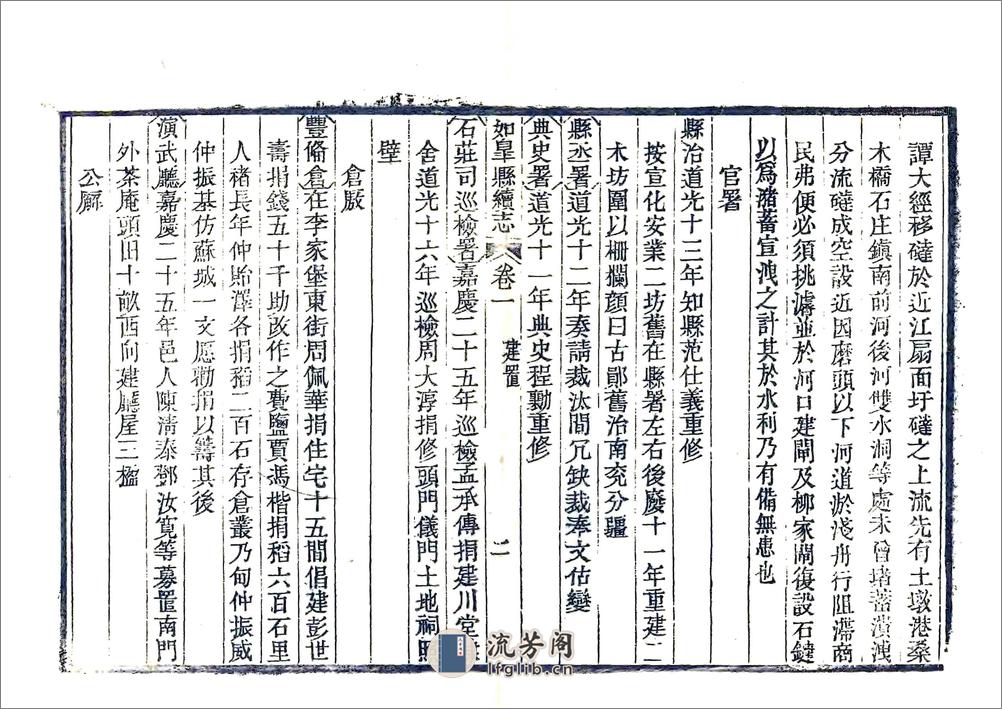 譚大經移䃮於近江扇面圩䃮之上流先有土墩港桑
木橋石庄鎮南前河後河雙水洞等處未曾堵蓄潰洩
分流䃮成空設近因磨頭以下河道淤淺舟行阻滯商
民弗便必須挑濬並於河口建閘及柳家閘復設石鍵
以爲瀦蓄宣洩之計其於水利乃有備無患也
官署
縣治道光十三年知縣范仕義重修
按宣化安業二坊舊在縣署左右後廢十一年重建二
木坊圍以柵欄顏曰古鄖舊治南兖分疆
縣丞署道光十二年奏請裁汰閒冗缺裁奉文估變
典史署道光十一年典史程勳重修
如皐縣續志 卷一 建置 二
石莊司巡檢署嘉慶二十五年巡檢孟承傳捐建川堂
舍道光十六年巡檢周大淳捐修頭門儀門土地祠照
壁
倉廒
豐備倉在李家堡東街周佩華捐住宅十五間倡建彭世
壽捐錢五十千助改作之費鹽賈馮楷捐稻六百石里
人褚長年仲貽澤各捐稻二百石存倉叢乃甸仲振威
仲振基仿蘇城一文愿勸捐以籌其後
演武廳嘉慶二十五年邑人陳淸泰鄧汝寬等募置南門
外茶庵頭田十畝西向建廳屋三楹
公廨
流芳阁
lfglib.cn